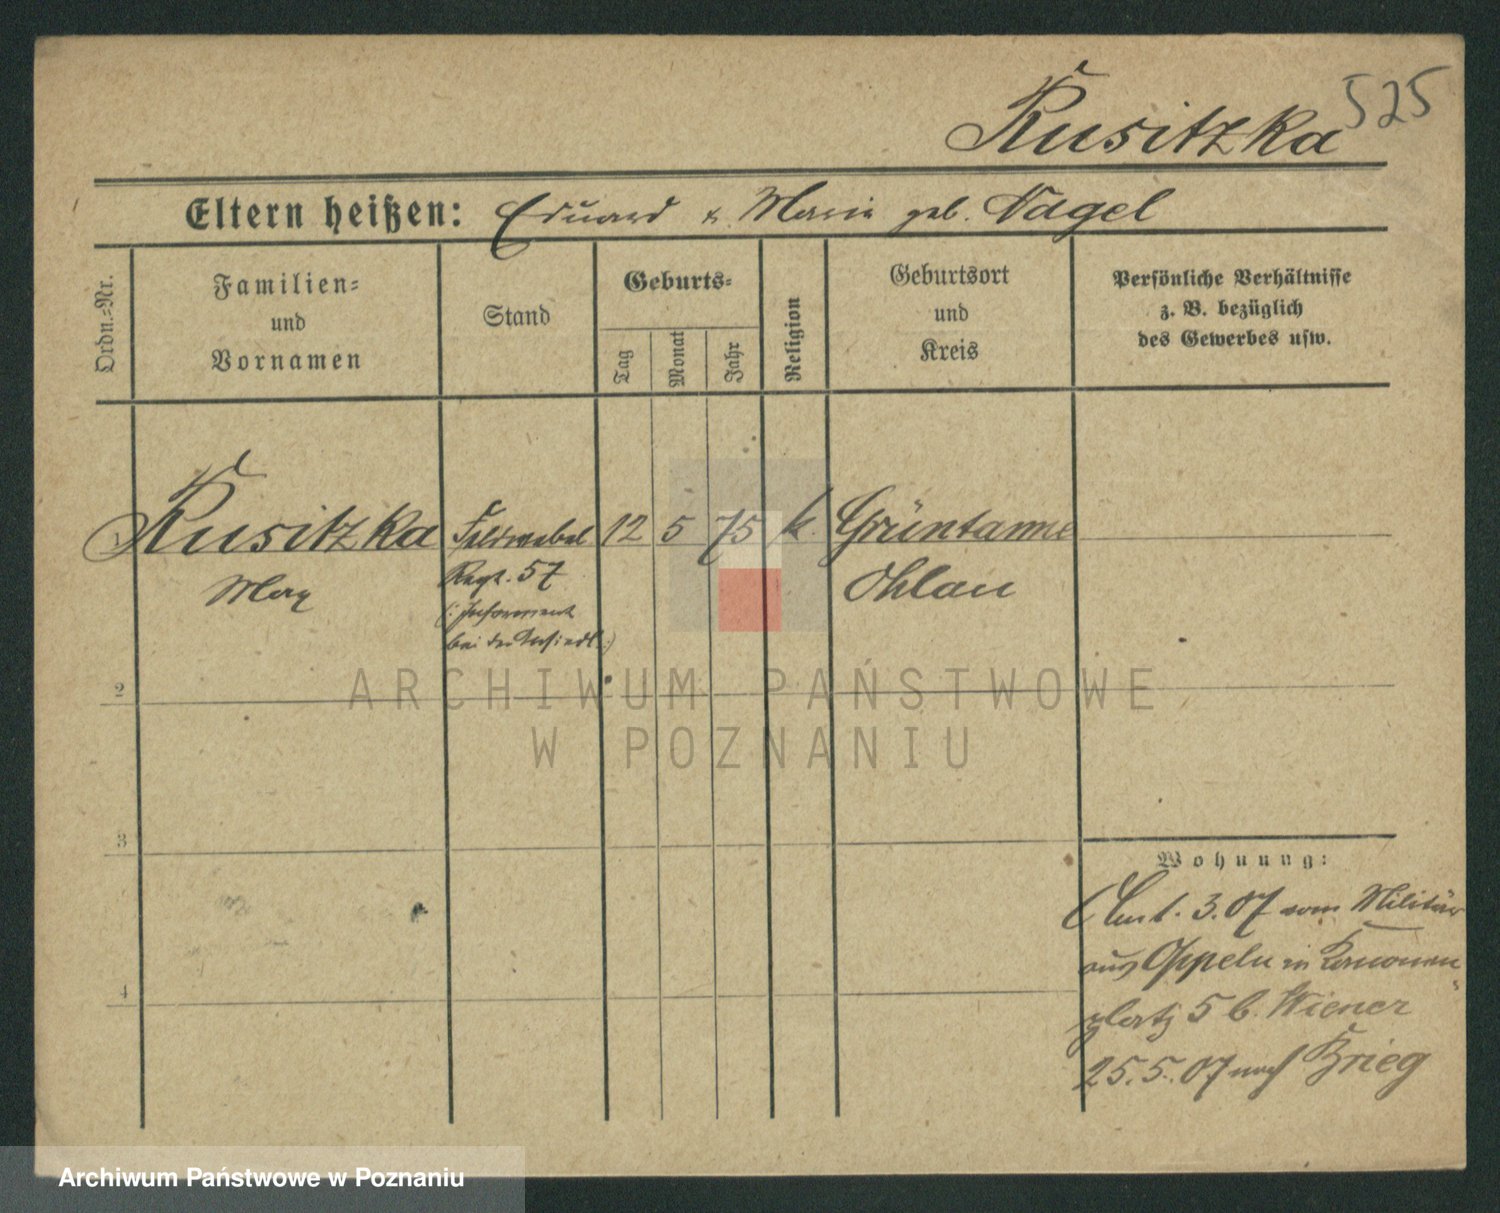 525
Kusitzka
Eltern heißen: Eduard & Marie geb. Nagel
Ordn.=Nr.
Familien=
und
Vornamen
Stand
Geburts=
Tag
Monat
Jahr
Religion
Geburtsort
und
Kreis
Persönliche Verhältnisse
z. B. bezüglich
des Gewerbes usw.
Kusitzka
Max
Feldwebel
Regt. 57
(: Informant
bei der Ansiedl. :)
12 5 75 k. Grüntanne
Ohlau
2
3
4
Wohnung:
3.07 vom Militär
aus Oppeln in Kanonen
platz 5 b. Wiener
25.5.07 nach Brieg
ARCHIWUM PAŃSTWOWE
W POZNANIU
Archiwum Państwowe w Poznaniu